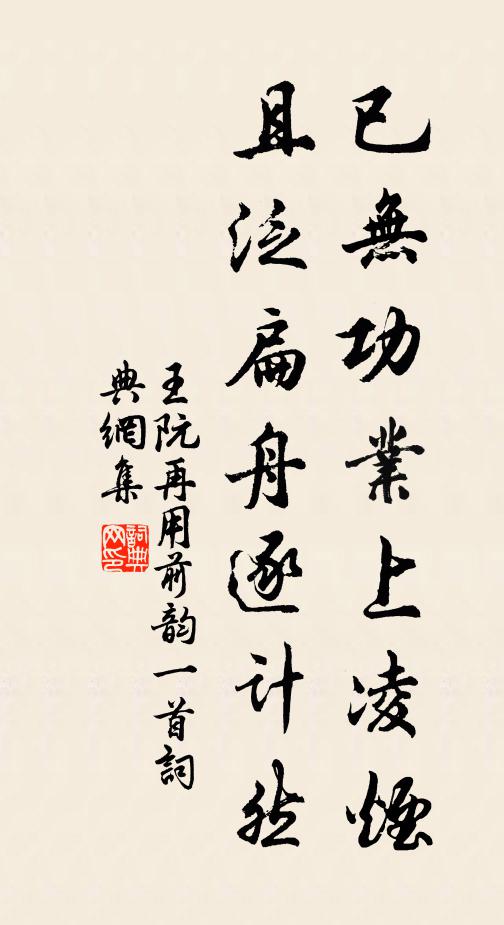 已無功業上凌煙
且泛扁舟逐计然
王阮再用前韵一首詞
典網集
詞典网印